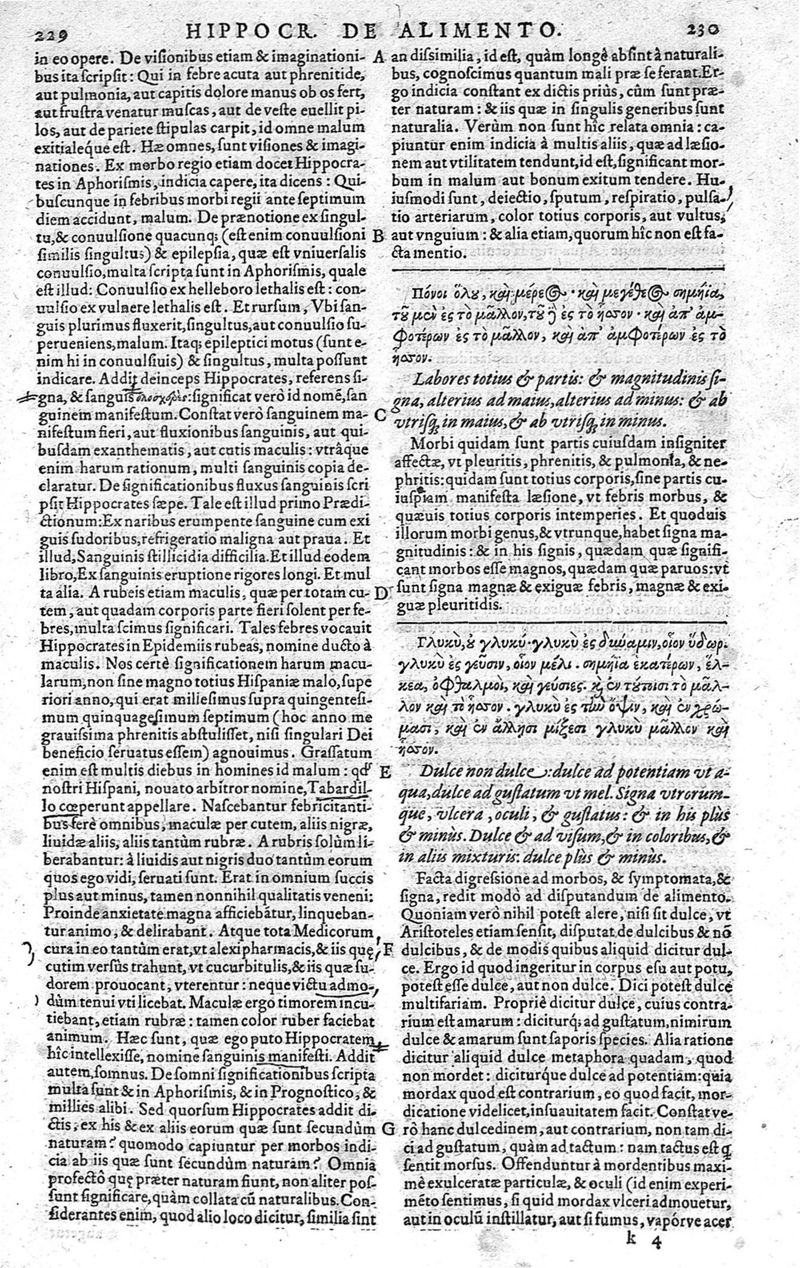 229 HIPPOCR. DE ALIMENTO. 230
in eo opere. De visionibus etiam & imaginationi-
bus ita scripsit: Qui in febre acuta aut phrenitide,
aut pulmonia, aut capitis dolore manus ob os fert,
aut frustra venatur muscas, aut de veste euellit pi-
los, aut de pariete stipulas carpit, id omne malum
exitialeque est. Hæ omnes, sunt visiones & imagi-
nationes. Ex morbo regio etiam docet Hippocra-
tes in Aphorismis, indicia capere, ita dicens: Qui-
buscunque in febribus morbi regii ante septimum
diem accidunt, malum. De prænotione ex singul-
tu, & conuulsione quacunq; (est enim conuulsioni
similis singultus) & epilepsia, quæ est vniuersalis
conuulsio, multa scripta sunt in Aphorismis, quale
est illud: Conuulsio ex helleboro lethalis est: con-
uulsio ex vulnere lethalis est. Et rursum, Vbi san-
guis plurimus fluxerit, singultus, aut conuulsio su-
perueniens, malum. Itaq; epileptici motus (sunt e-
nim hi in conuulsiuis) & singultus, multa possunt
indicare. Addit deinceps Hippocrates, referens si-
gna, & sanguis ὁλοσχερὲς: significat verò id nomē, san
guinem manifestum. Constat verò sanguinem ma-
nifestum fieri, aut fluxionibus sanguinis, aut qui-
busdam exanthematis, aut cutis maculis: vtrâque
enim harum rationum, multi sanguinis copia de-
claratur. De significationibus fluxus sanguinis scri
psit Hippocrates sæpe. Tale est illud primo Prædi-
ctionum: Ex naribus erumpente sanguine cum exi
guis sudoribus, refrigeratio maligna aut praua. Et
illud, Sanguinis stillicidia difficilia. Et illud eodem
libro, Ex sanguinis eruptione rigores longi. Et mul
ta alia. A rubeis etiam maculis, quæ per totam cu-
tem, aut quadam corporis parte fieri solent per fe-
bres, multa scimus significari. Tales febres vocauit
Hippocrates in Epidemiis rubeas, nomine ducto à
maculis. Nos certè significationem harum macu-
larum, non sine magno totius Hispaniæ malo, supe
riori anno, qui erat millesimus supra quingentesi-
mum quinquagesimum septimum (hoc anno me
grauissima phrenitis abstulisset, nisi singulari Dei
beneficio seruatus essem) agnouimus. Grassatum
enim est multis diebus in homines id malum: qđ
nostri Hispani, nouato arbitror nomine, Tabardil-
lo cœperunt appellare. Nascebantur febricitanti-
bus ferè omnibus, maculæ per cutem, aliis nigræ,
liuidæ aliis, aliis tantùm rubræ. A rubris solùm li-
berabantur: à liuidis aut nigris duo tantùm eorum
quos ego vidi, seruati sunt. Erat in omnium succis
plus aut minus, tamen nonnihil qualitatis veneni:
Proinde anxietate magna afficiebātur, linqueban-
tur animo, & delirabant. Atque tota Medicorum
cura in eo tantùm erat, vt alexipharmacis, & iis quę
cutim versùs trahunt, vt cucurbitulis, & iis quæ su-
dorem prouocant, vterentur: neque victu admo-
dùm tenui vti licebat. Maculæ ergo timorem incu-
tiebant, etiam rubræ: tamen color ruber faciebat
animum. Hæc sunt, quæ ego puto Hippocratem
hîc intellexisse, nomine sanguinis manifesti. Addit
autem, somnus. De somni significationibus scripta
multa sunt & in Aphorismis, & in Prognostico, &
millies alibi. Sed quorsum Hippocrates addit di-
ctis, ex his & ex aliis eorum quæ sunt secundùm
naturam? quomodo capiuntur per morbos indi-
cia ab iis quæ sunt secundùm naturam? Omnia
profectò quę præter naturam fiunt, non aliter pos-
sunt significare, quàm collata cū naturalibus. Con-
siderantes enim, quod alio loco dicitur, similia sint
A
B
C
D
E
F
G
an dissimilia, id est, quàm longè absint à naturali-
bus, cognoscimus quantum mali præ se ferant. Er-
go indicia constant ex dictis priùs, cùm sunt præ-
ter naturam: & iis quæ in singulis generibus sunt
naturalia. Verùm non sunt hîc relata omnia: ca-
piuntur enim indicia à multis aliis, quæ ad læsio-
nem aut vtilitatem tendunt, id est, significant mor-
bum in malum aut bonum exitum tendere. Hu-
iusmodi sunt, deiectio, sputum, respiratio, pulsa-
tio arteriarum, color totius corporis, aut vultus,
aut vnguium: & alia etiam, quorum hîc non est fa-
cta mentio.
Πόνοι ὅλου, καὶ μέρεος· καὶ μεγέθεος σημήϊα,
τοῦ μὲν ἐς τὸ μᾶλλον, τοῦ δὲ ἐς τὸ ἧσσον· καὶ ἀπ' ἀμ-
φοτέρων ἐς τὸ μᾶλλον, καὶ ἀπ' ἀμφοτέρων ἐς τὸ
ἧσσον.
Labores totius & partis: & magnitudinis si-
gna, alterius ad maius, alterius ad minus: & ab
vtrisq; in maius, & ab vtrisq; in minus.
Morbi quidam sunt partis cuiusdam insigniter
affectæ, vt pleuritis, phrenitis, & pulmonia, & ne-
phritis: quidam sunt totius corporis, sine partis cu-
iuspiam manifesta læsione, vt febris morbus, &
quæuis totius corporis intemperies. Et quoduis
illorum morbi genus, & vtrunque, habet signa ma-
gnitudinis: & in his signis, quædam quæ signifi-
cant morbos esse magnos, quædam quæ paruos: vt
sunt signa magnæ & exiguæ febris, magnæ & exi-
guæ pleuritidis.
Γλυκὺ, οὐ γλυκύ· γλυκὺ ἐς δύναμιν, οἷον ὕδωρ.
γλυκὺ ἐς γεῦσιν, οἷον μέλι. σημήϊα ἑκατέρων, ἕλ-
κεα, ὀφθαλμοὶ, καὶ γεύσιες. καὶ ἐν τούτοισι τὸ μᾶλ-
λον καὶ τὸ ἧσσον. γλυκὺ ἐς τὴν ὄψιν, καὶ ἐν χρώ-
μασι, καὶ ἐν ἄλλησι μίξεσι γλυκὺ μᾶλλον καὶ
ἧσσον.
Dulce non dulce: dulce ad potentiam vt a-
qua, dulce ad gustatum vt mel. Signa vtrorum-
que, vlcera, oculi, & gustatus: & in his plùs
& minùs. Dulce & ad visum, & in coloribus, &
in aliis mixturis: dulce plùs & minùs.
Facta digressione ad morbos, & symptomata, &
signa, redit modò ad disputandum de alimento.
Quoniam verò nihil potest alere, nisi sit dulce, vt
Aristoteles etiam sensit, disputat de dulcibus & nō
dulcibus, & de modis quibus aliquid dicitur dul-
ce. Ergo id quod ingeritur in corpus esu aut potu,
potest esse dulce, aut non dulce. Dici potest dulce
multifariam. Propriè dicitur dulce, cuius contra-
rium est amarum: diciturq; ad gustatum, nimirum
dulce & amarum sunt saporis species. Alia ratione
dicitur aliquid dulce metaphora quadam, quod
non mordet: diciturque dulce ad potentiam: quia
mordax quod est contrarium, eo quod facit, mor-
dicatione videlicet, insuauitatem facit. Constat ve-
rò hanc dulcedinem, aut contrarium, non tam di-
ci ad gustatum, quàm ad tactum: nam tactus est q
sentit morsus. Offenduntur à mordentibus maxi-
mè exulceratæ particulæ, & oculi (id enim experi-
mēto sentimus, si quid mordax vlceri admouetur,
aut in oculū instillatur, aut si fumus, vapórve acer
k 4